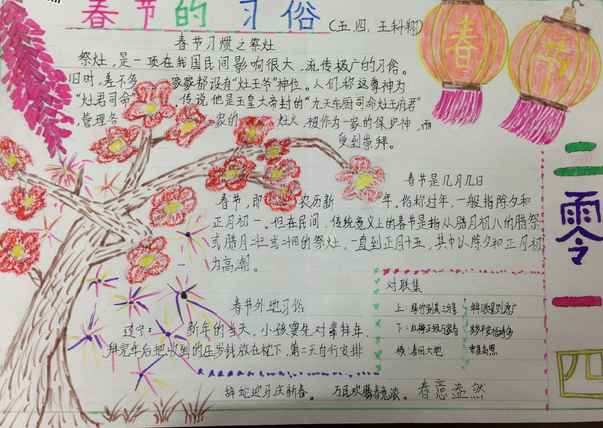 春节的习俗
(五.四.王科翔)
春节
春节习惯之祭灶
祭灶,是一项在我国民间影响很大,流传极广的习俗。
旧时,差不多家家都设有“灶王爷”神位。人们称这尊神为
“灶君司命”,传说他是玉皇大帝封的“九天东厨司命灶王府君”
,管理各家的灶火,被作为一家的保护神,而
受到崇拜。
春节是几月几日
春节,即农历新年,俗称过年,一般指除夕和
正月初一。但在民间,传统意义上的春节是指从腊月初八的腊祭
或腊月二十三或二十四的祭灶,一直到正月十五,其中以除夕和正月初
一为高潮。
春节外地习俗
辽宁:新年的当天,小孩要先对长辈拜年,
拜完年后把收到的压岁钱放在枕下,第二天自行安排
对联集
上:
下:
横:春回大地
辞蛇迎马庆新春。万民欢腾春意浓。春意盎然
二零一四